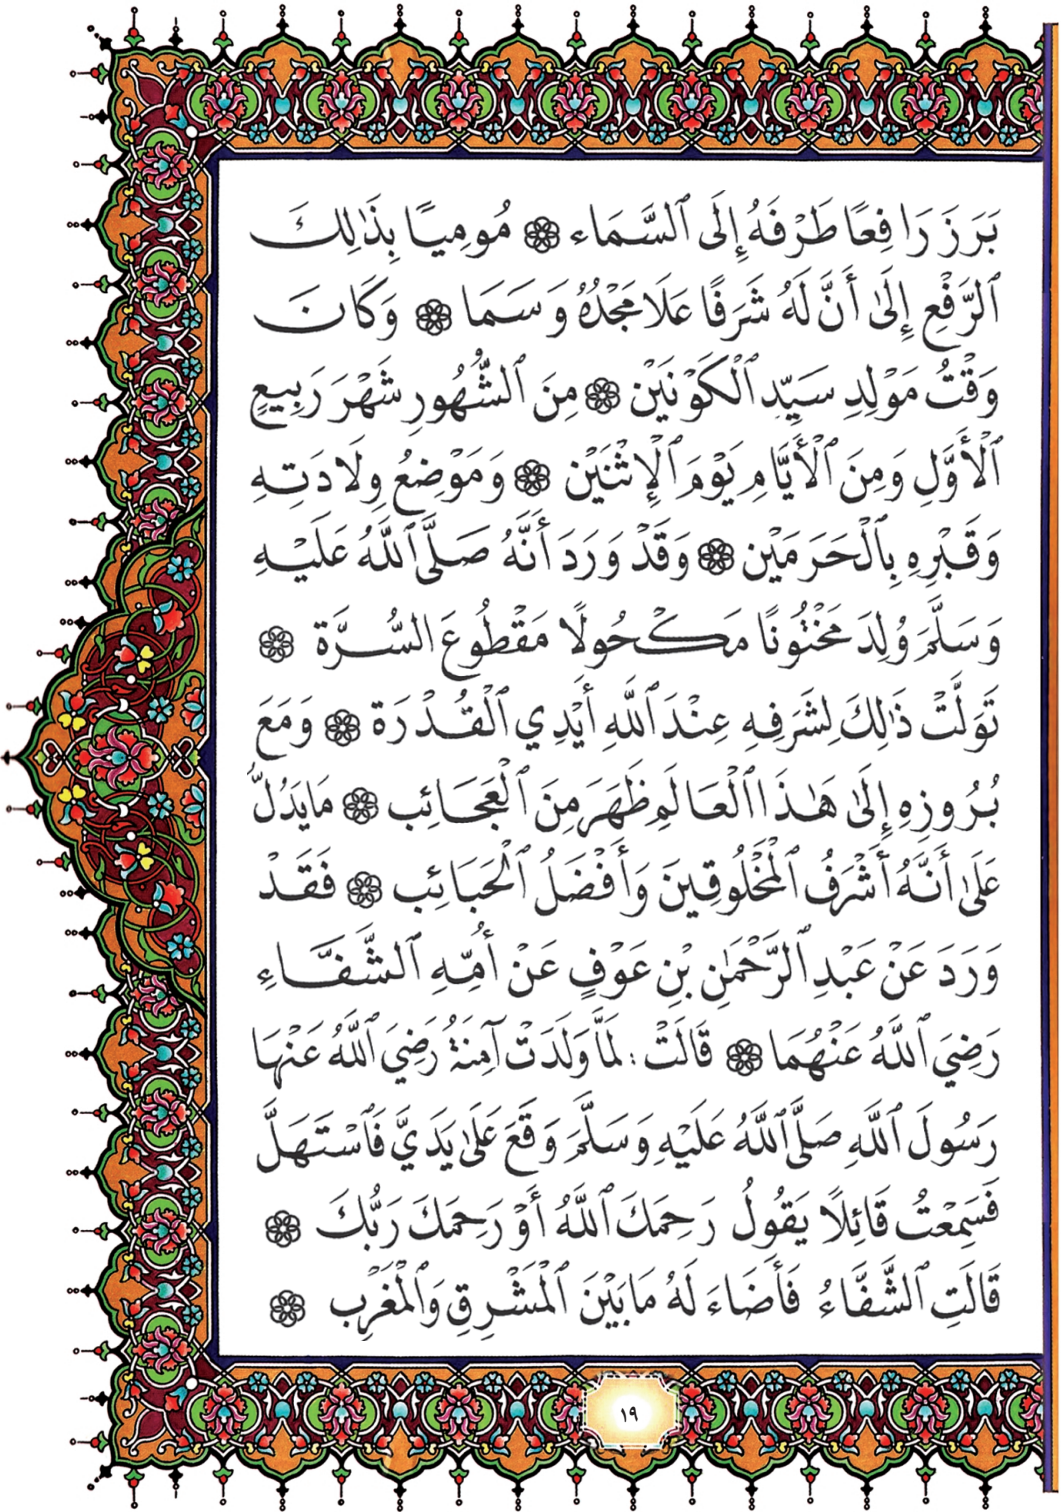 بَرَزَ رَافِعًا طَرْفَهُ إِلَى ٱلسَّمَاء ۞ مُومِيًا بِذَٰلِكَ
ٱلرَّفْعِ إِلَىٰ أَنَّ لَهُ شَرَفًا عَلَا مَجْدُهُ وَسَمَا ۞ وَكَانَ
وَقْتُ مَوْلِدِ سَيِّدِ ٱلْكَوْنَيْن ۞ مِنَ ٱلشُّهُورِ شَهْرَ رَبِيعٍ
ٱلْأَوَّلِ وَمِنَ ٱلْأَيَّامِ يَوْمَ ٱلْإِثْنَيْن ۞ وَمَوْضِعُ وِلَادَتِهِ
وَقَبْرِهِ بِٱلْحَرَمَيْن ۞ وَقَدْ وَرَدَ أَنَّهُ صَلَّى ٱللَّهُ عَلَيْهِ
وَسَلَّمَ وُلِدَ مَخْتُونًا مَكْحُولًا مَقْطُوعَ السُّرَّة ۞
تَوَلَّتْ ذَٰلِكَ لِشَرَفِهِ عِنْدَ ٱللَّهِ أَيْدِي ٱلْقُدْرَة ۞ وَمَعَ
بُرُوزِهِ إِلَىٰ هَٰذَا ٱلْعَالَمِ ظَهَرَ مِنَ ٱلْعَجَائِب ۞ مَا يَدُلُّ
عَلَىٰ أَنَّهُ أَشْرَفُ ٱلْمَخْلُوقِينَ وَأَفْضَلُ ٱلْحَبَائِب ۞ فَقَدْ
وَرَدَ عَنْ عَبْدِ ٱلرَّحْمَٰنِ بْنِ عَوْفٍ عَنْ أُمِّهِ ٱلشَّفَّاءِ
رَضِيَ ٱللَّهُ عَنْهُمَا ۞ قَالَتْ: لَمَّا وَلَدَتْ آمِنَةُ رَضِيَ ٱللَّهُ عَنْهَا
رَسُولَ ٱللَّهِ صَلَّى ٱللَّهُ عَلَيْهِ وَسَلَّمَ وَقَعَ عَلَىٰ يَدَيَّ فَٱسْتَهَلَّ
فَسَمِعْتُ قَائِلًا يَقُولُ رَحِمَكَ ٱللَّهُ أَوْ رَحِمَكَ رَبُّكَ ۞
قَالَتِ ٱلشَّفَّاءُ فَأَضَاءَ لَهُ مَا بَيْنَ ٱلْمَشْرِقِ وَٱلْمَغْرِبِ ۞
١٩